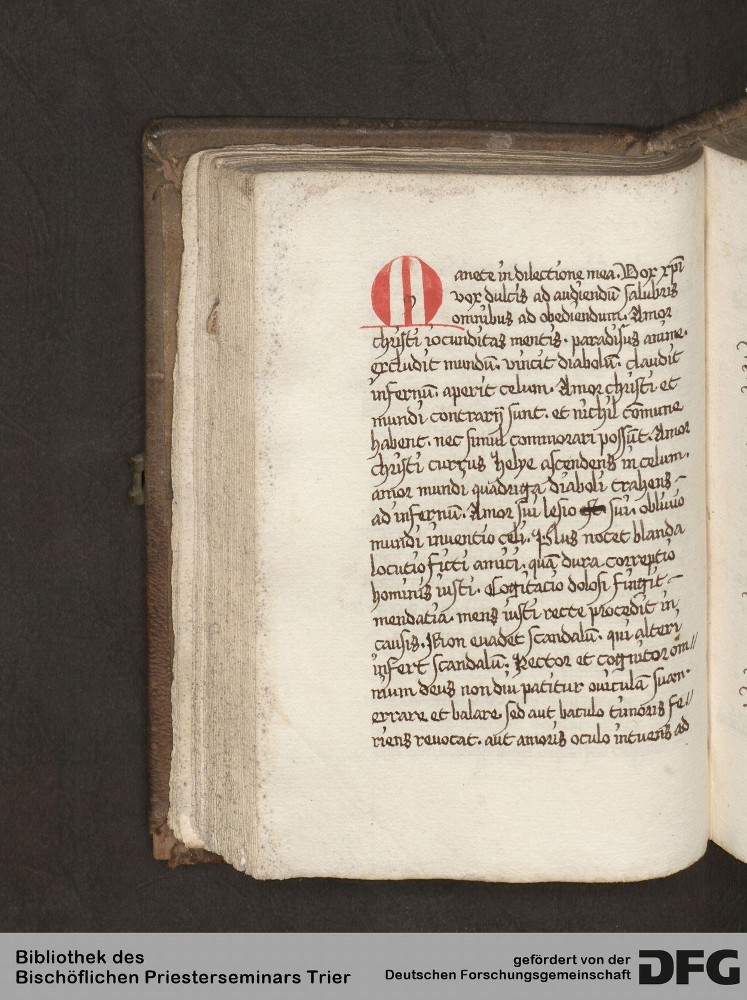 Manete in dilectione mea. Vox xpi
vox dulcis ad audiendū salubris
omnibus ad obediendum. Amor
christi iocunditas mentis. paradisus anime.
excludit mundū. vincit diabolū. claudit
infernū. aperit celum. Amor christi et
mundi contrarij sunt. et nichil cōmune
habent. nec simul commorari possūt. Amor
christi currus helye ascendens in celum.
amor mundi quadriga diaboli trahens
ad infernū. Amor sui lesio est sui. obliuio
mundi inuentio celi. Plus nocet blanda
locutio ficti amici. quā dura correptio
hominis iusti. Cogitacio dolosi fingit
mendatia. mens iusti recte procedit in
causis. Non euadet scandalū. qui alteri
infert scandalū. Rector et cognitor om̄//
nium deus non diu patitur ouiculā suam.
errare et balare sed aut baculo timoris fe//
riens reuocat. aut amoris oculo intuens ad
Bibliothek des
Bischöflichen Priesterseminars Trier
gefördert von der
Deutschen Forschungsgemeinschaft
DFG